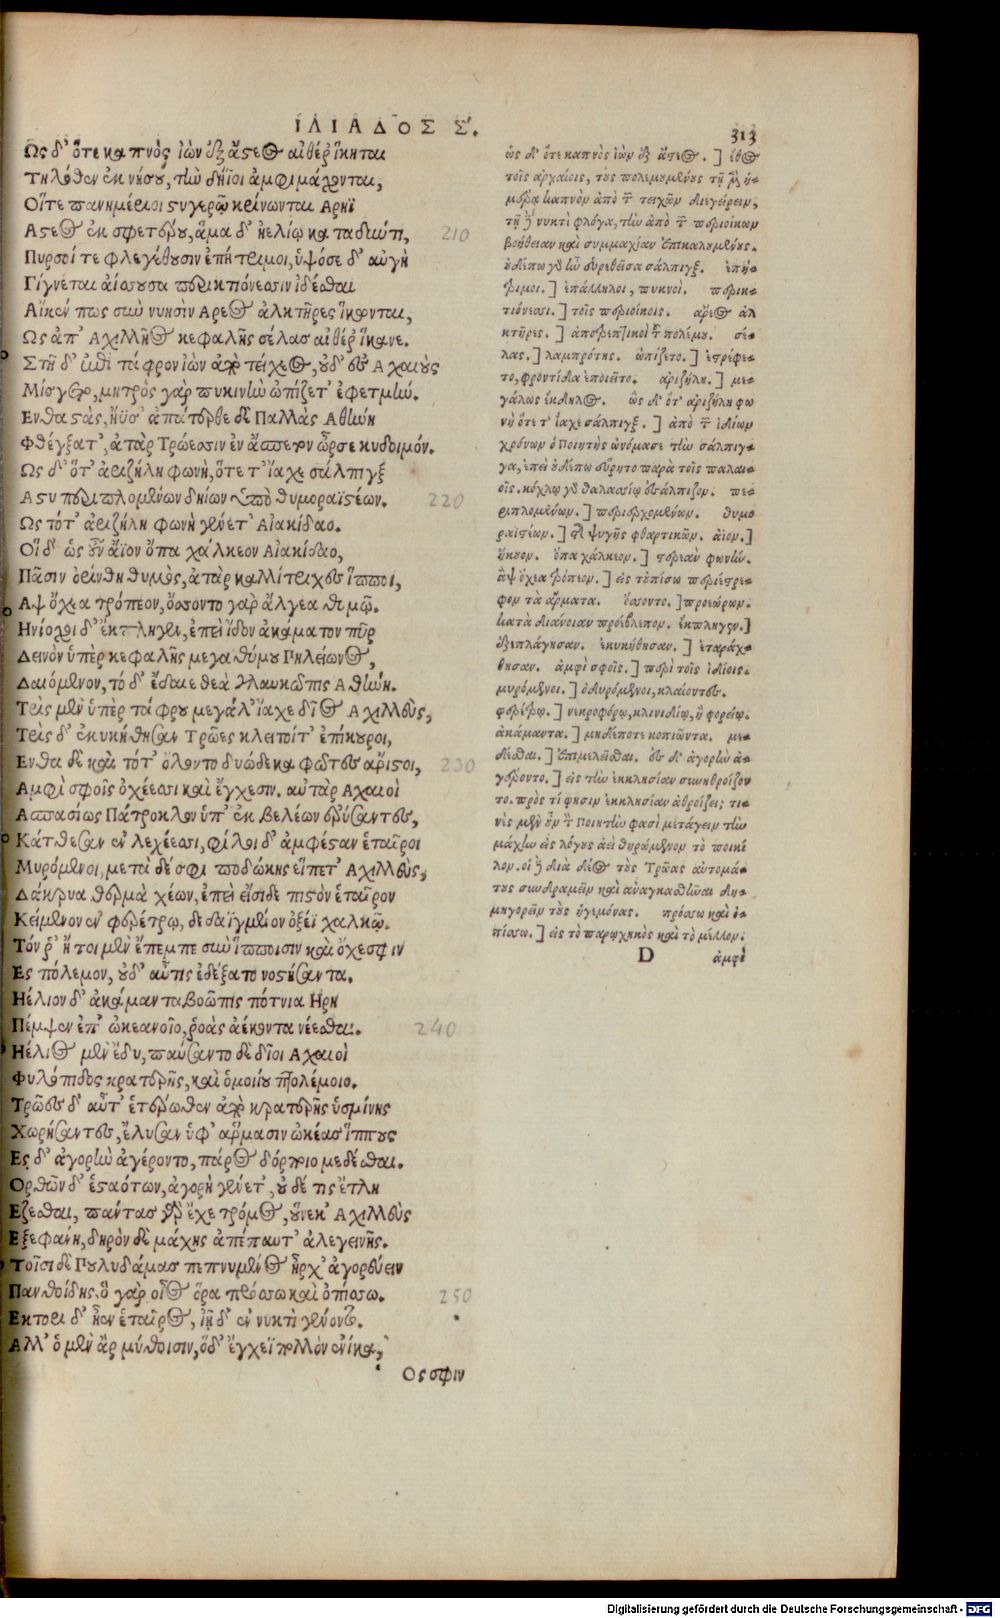 ΙΛΙΑΔΟΣ Σ΄.
313
Ως δ' ὅτε καπνὸς ἰὼν ἐξ ἄστεος αἰθέρ' ἵκηται
Τηλόθεν ἐκ νήσου, τὴν δήϊοι ἀμφιμάχονται,
Οἵτε πανημέριοι στυγερῷ κρίνωνται Αρηϊ
Αστεος ἐκ σφετέρου, ἅμα δ' ἠελίῳ καταδύντι,
210
Πυρσοί τε φλεγέθουσιν ἐπήτριμοι, ὑψόσε δ' αὐγὴ
Γίγνεται ἀίσσουσα περικτιόνεσσιν ἰδέσθαι
Αἴκέν πως σὺν νηυσὶν Αρεος ἀλκτῆρες ἵκωνται,
Ως ἀπ' Αχιλλῆος κεφαλῆς σέλας αἰθέρ' ἵκανε.
Στῆ δ' ἐπὶ τάφρον ἰὼν ἀπὸ τείχεος, οὐδ' ἐς Αχαιοὺς
Μίσγετο, μητρὸς γὰρ πυκινὴν ὠπίζετ' ἐφετμήν.
Ενθα στὰς, ἤϋσ' ἀπάτερθε δὲ Παλλὰς Αθήνη
Φθέγξατ', ἀτὰρ Τρώεσσιν ἐν ἄσπετον ὦρσε κυδοιμόν.
Ως δ' ὅτ' ἀριζήλη φωνὴ, ὅτε τ' ἴαχε σάλπιγξ
Αστυ περιπλομένων δηίων ὑπὸ θυμοραϊστέων.
220
Ως τότ' ἀριζήλη φωνὴ γένετ' Αἰακίδαο.
Οἱ δ' ὡς οὖν ἄϊον ὄπα χάλκεον Αἰακίδαο,
Πᾶσιν ὀρίνθη θυμὸς, ἀτὰρ καλλίτριχες ἵπποι,
Αψ ὄχεα τρόπεον, ὄσσοντο γὰρ ἄλγεα θυμῷ.
Ηνίοχοι δ' ἔκπληγεν, ἐπεὶ ἴδον ἀκάματον πῦρ
Δεινὸν ὑπὲρ κεφαλῆς μεγαθύμου Πηλείωνος,
Δαιόμενον, τό δ' ἔδαιε θεὰ γλαυκῶπις Αθήνη.
Τρὶς μὲν ὑπὲρ τάφρου μεγάλ' ἴαχε δῖος Αχιλλεὺς,
Τρὶς δ' ἐκυκήθησαν Τρῶες κλειτοίτ' ἐπίκουροι,
Ενθα δὲ καὶ τότ' ὄλοντο δυώδεκα φῶτες ἄριστοι,
230
Αμφὶ σφοῖς ὀχέεσσι καὶ ἔγχεσιν. αὐτὰρ Αχαιοὶ
Ασπασίως Πάτροκλον ὑπ' ἐκ βελέων ἐρύσαντες,
Κάτθεσαν ἐν λεχέεσσι, φίλοι δ' ἀμφέσταν ἑταῖροι
Μυρόμενοι, μετὰ δέ σφι ποδώκης εἵπετ' Αχιλλεὺς,
Δάκρυα θερμὰ χέων, ἐπεὶ εἴσιδε πιστὸν ἑταῖρον
Κείμενον ἐν φερέτρῳ, δεδαϊγμένον ὀξέϊ χαλκῷ.
Τόν ῥ' ἤτοι μὲν ἔπεμπε σὺν ἵπποισιν καὶ ὄχεσφιν
Ες πόλεμον, οὐδ' αὖτις ἐδέξατο νοστήσαντα.
Ηέλιον δ' ἀκάμαντα βοῶπις πότνια Ηρη
Πέμψεν ἐπ' ὠκεανοῖο, ῥοὰς ἀέκοντα νέεσθαι.
240
Ηέλιος μὲν ἔδυ, παύσαντο δὲ δῖοι Αχαιοὶ
Φυλόπιδος κρατερῆς, καὶ ὁμοιίου πτολέμοιο.
Τρῶες δ' αὖτ' ἑτέρωθεν ἀπὸ κρατερῆς ὑσμίνης
Χωρήσαντες, ἔλυσαν ὑφ' ἅρμασιν ὠκέας ἵππους
Ες δ' ἀγορὴν ἀγέροντο, πάρος δόρποιο μεδέσθαι.
Ορθῶν δ' ἑσταότων, ἀγορὴ γένετ', οὐδέ τις ἔτλη
Εζεσθαι, πάντας γὰρ ἔχε τρόμος, οὕνεκ' Αχιλλεὺς
Εξεφάνη, δηρὸν δὲ μάχης ἀπέπαυτ' ἀλεγεινῆς.
Τοῖσι δὲ Πουλυδάμας πεπνυμένος ἦρχ' ἀγορεύειν
Πανθοίδης, ὃ γὰρ οἶος ὅρα πρόσσω καὶ ὀπίσσω.
250
Εκτορι δ' ἦεν ἑταῖρος, ἰῇ δ' ἐν νυκτὶ γένοντο.
Αλλ' ὁ μὲν ἂρ μύθοισιν, ὁ δ' ἔγχεϊ πολλὸν ἐνίκα,
Ος σφιν
ὡς δ' ὅτε καπνὸς ἰὼν ἐξ ἄστεος.] ἔθος
τοῖς ἀρχαίοις, τοὺς πολεμουμένους τῇ μὲν ἡ-
μέρᾳ καπνὸν ἀπὸ τῶν τειχῶν διεγείρειν,
τῇ δὲ νυκτὶ φλόγα, τὴν ἀπὸ τῶν περιοίκων
βοήθειαν καὶ συμμαχίαν ἐπικαλουμένους.
οὐδέπω γὰρ ἦν εὑρεθεῖσα σάλπιγξ. ἐπή-
τριμοι.] ἐπάλληλοι, πυκνοί. περικ-
τιόνεσσι.] τοῖς περιοίκοις. ἄρεος ἀλ
κτῆρες.] ἀποτρεπτικοὶ τοῦ πολέμου. σέ-
λας.] λαμπρότης. ὠπίζετο.] ἐπεστρέφε-
το, φροντίδα ἐποιεῖτο. ἀριζήλη.] με-
γάλως ἔκδηλος. ὡς δ' ὅτ' ἀριζήλη φω
νὴ ὅτε τ' ἴαχε σάλπιγξ.] ἀπὸ τῶν ἰδίων
χρόνων ὁ ποιητὴς ὠνόμασε τὴν σάλπιγ-
γα, ἐπεὶ οὐδέπω εὕρητο παρὰ τοῖς παλαι-
οῖς. κόχλῳ γὰρ θαλασσίῳ ἐσάλπιζον. πε-
ριπλομένων.] περιερχομένων. θυμο
ραϊστέων.] τῶν ψυχῆς φθαρτικῶν. ἄιον.]
ἤκουον. ὄπα χάλκεον.] στερεὰν φωνήν.
ἂψ ὄχεα τρόπεον.] εἰς τὀπίσω περιέστρε-
φον τὰ ἅρματα. ὄσσοντο.] προεώρων.
κατὰ διάνοιαν προέβλεπον. ἔκπληγεν.]
ἐξεπλάγησαν. ἐκυκήθησαν.] ἐταράχ-
θησαν. ἀμφὶ σφοῖς.] περὶ τοῖς ἰδίοις.
μυρόμενοι.] ὀδυρόμενοι, κλαίοντες.
φερέτρῳ.] νεκροφόρῳ, κλινιδίῳ, ἢ φορείῳ.
ἀκάμαντα.] μηδέποτε κοπιῶντα. με-
δέσθαι.] ἐπιμελεῖσθαι. ἐς δ' ἀγορὴν ἀ-
γέροντο.] εἰς τὴν ἐκκλησίαν συνηθροίζον
το. πρὸς τί φησιν ἐκκλησίαν ἀθροίζει; τι-
νὲς μὲν οὖν τὸν ποιητὴν φασὶ μετάγειν τὴν
μάχην εἰς λόγους ἀεὶ θηρώμενον τὸ ποικί
λον. οἱ δὲ διὰ δέος τοὺς Τρῶας αὐτομά-
τους συνδραμεῖν καὶ ἀναγκασθῆναι δη-
μηγορεῖν τοὺς ἡγεμόνας. πρόσσω καὶ ὀ-
πίσσω.] εἰς τὸ παρῳχηκὸς καὶ τὸ μέλλον.
D ἀμφὶ
Digitalisierung gefördert durch die Deutsche Forschungsgemeinschaft - DFG